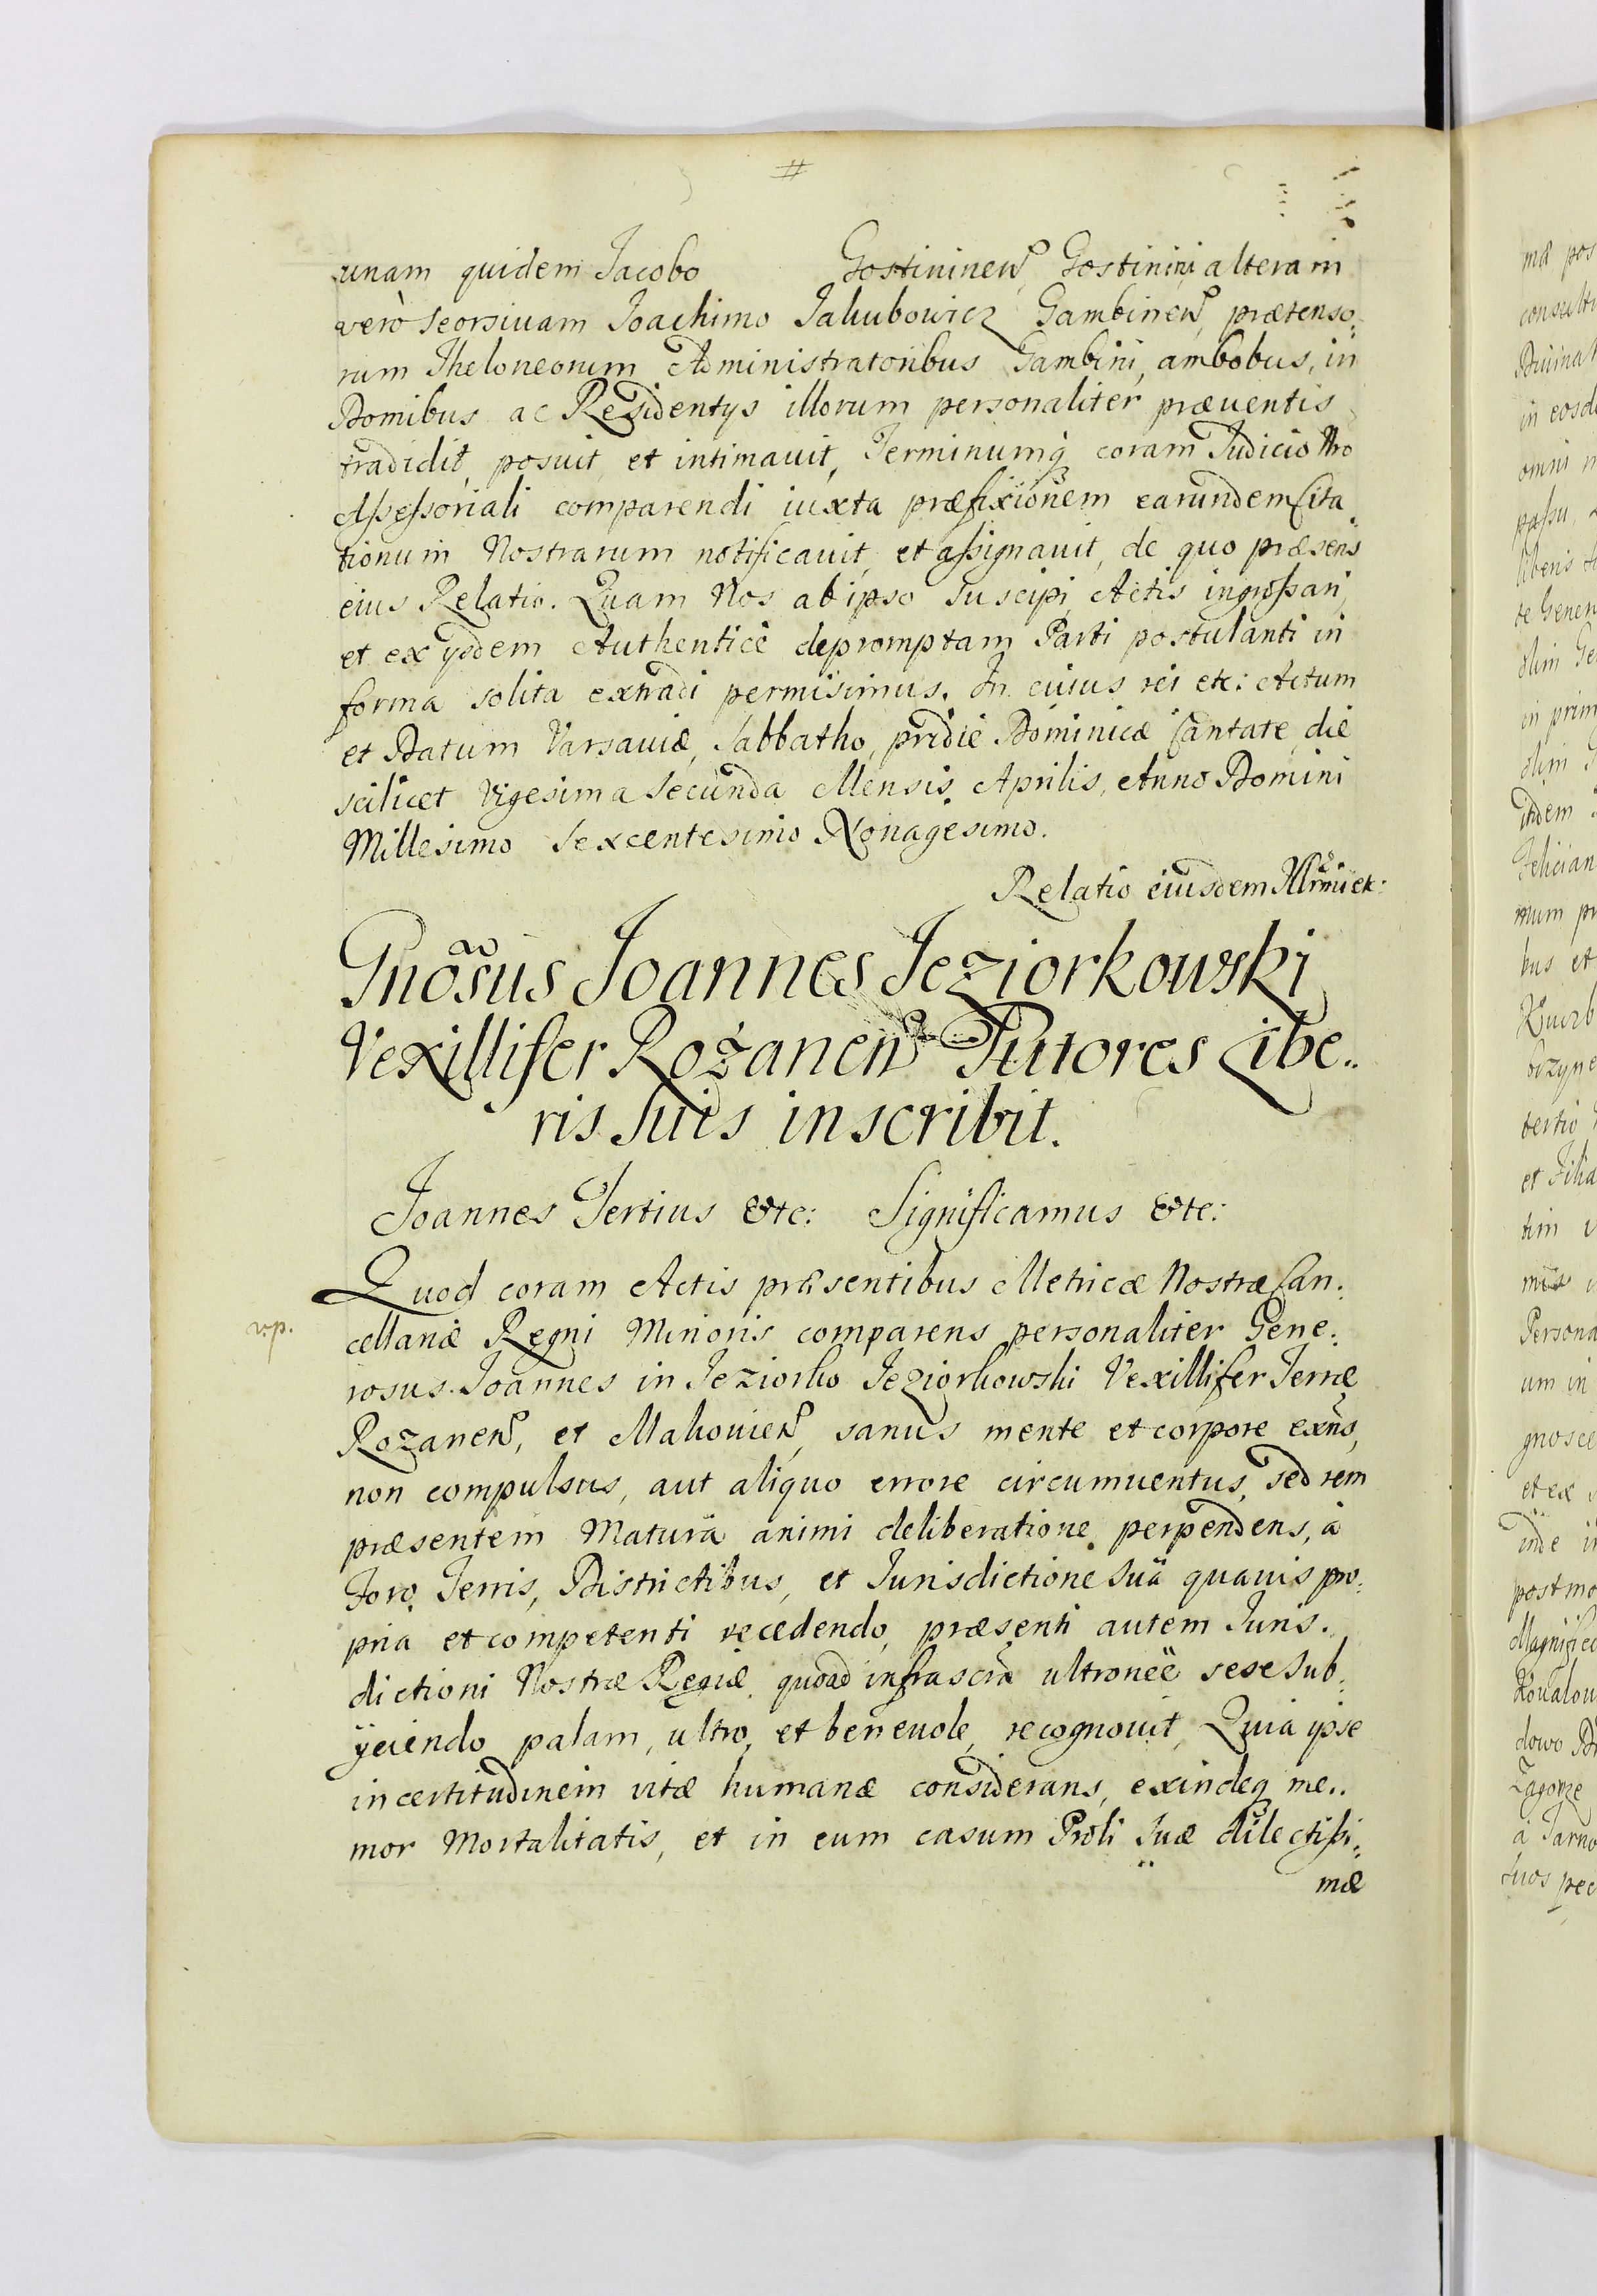 #
unam quidem Jacobo Gostininen, Gostinini, alteram
verò seorsiuam Joachimo Jakubowicz Gambinen, prætenso:
rum Theloneorum Administratoribus Gambini, ambobus, in
Domibus ac Residentys illorum personaliter præuentis
tradidit, posuit, et intimauit, Terminumq coram Judicio Nro
Assessoriali comparendi iuxta præfixionem earundem Cita
tionum Nostrarum notificauit, et assignauit, de quo præsens
eius Relatio. Quam Nos ab ipso suscipi, Actis ingrossari,
et ex ysdem Authenticè depromptam Parti postulanti in
forma solita extradi permisimus. In cuius rei etc: Actum
et Datum Varsauiæ, Sabbatho, pridie Dominicæ Cantate, die
scilicet Vigesima Secunda Mensis Aprilis, Anno Domini
Millesimo Sexcentesimo Nonagesimo.
Relatio eiusdem Illrmi etc:
Gnosus Joannes Jeziorkowski
Vexillifer Rożanen Tutores Libe..
ris suis inscribit.
Joannes Tertius &tc: Significamus &tc:
Quod coram Actis præsentibus Metricæ Nostræ Can:
rp.
cellariæ Regni Minoris comparens personaliter Gene:
rosus Joannes in Jeziorko Jeziorkowski Vexillifer Terræ
Rozanen, et Makouien, sanus mente et corpore exns,
non compulsus, aut aliquo errore circumuentus, sed rem
præsentem Maturâ animi deliberatione perpendens, à
Foro, Terris, Districtibus, et Jurisdictione suâ quauis pro:
pria et competenti recedendo, præsenti autem Juris..
dictioni Nostræ Regiæ quoad infrascra ultroneè sese sub:
yciendo palam, ultro, et beneuole, recognouit, Quia ipse
incertitudinem vitæ humanæ considerans, exindeq me..
mor Mortalitatis, et in eum casum Proli suæ dilectissi:
mæ